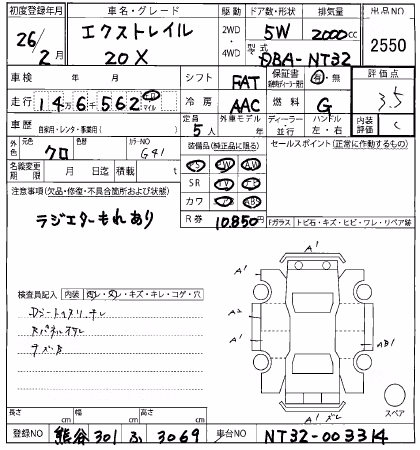 初度登録年月 車名・グレード 駆動 ドア数・形状 排気量 出品NO
26/2月 エクストレイル 20X 2WD・4WD 5W 2000cc 2550
型式 DBA-NT32
車検 年 月 シフト FAT 保証書 有・無 評価点
走行 146562 キロ マイル 冷房 AAC 燃料 G 3.5
車歴 自家用・レンタ・事業用( ) 定員 5人 外車モデル 年式 ディーラー・並行 ハンドル 左・右 内装評価 C
外色 元色 クロ 色替 カラーNO G41 装備品(純正品に限る) セールスポイント(正常に作動するもの)
名義変更期限 月 日迄 積載 t PS AW PW
注意事項(欠品・修復・不具合箇所および状態) SR TV ナビ
ラジエターもれあり カワ エアB ABS
R券 10,850円 Fガラス トビ石・キズ・ヒビ・ワレ・リペア跡
検査員記入 内装 汚レ・スレ・キズ・キレ・コゲ・穴
A1
A1 A1
A2
A1 AB1
A1
スペア
長さ cm 幅 cm 高さ cm
登録NO 熊谷 301 ふ 3069 車台NO NT32-003314